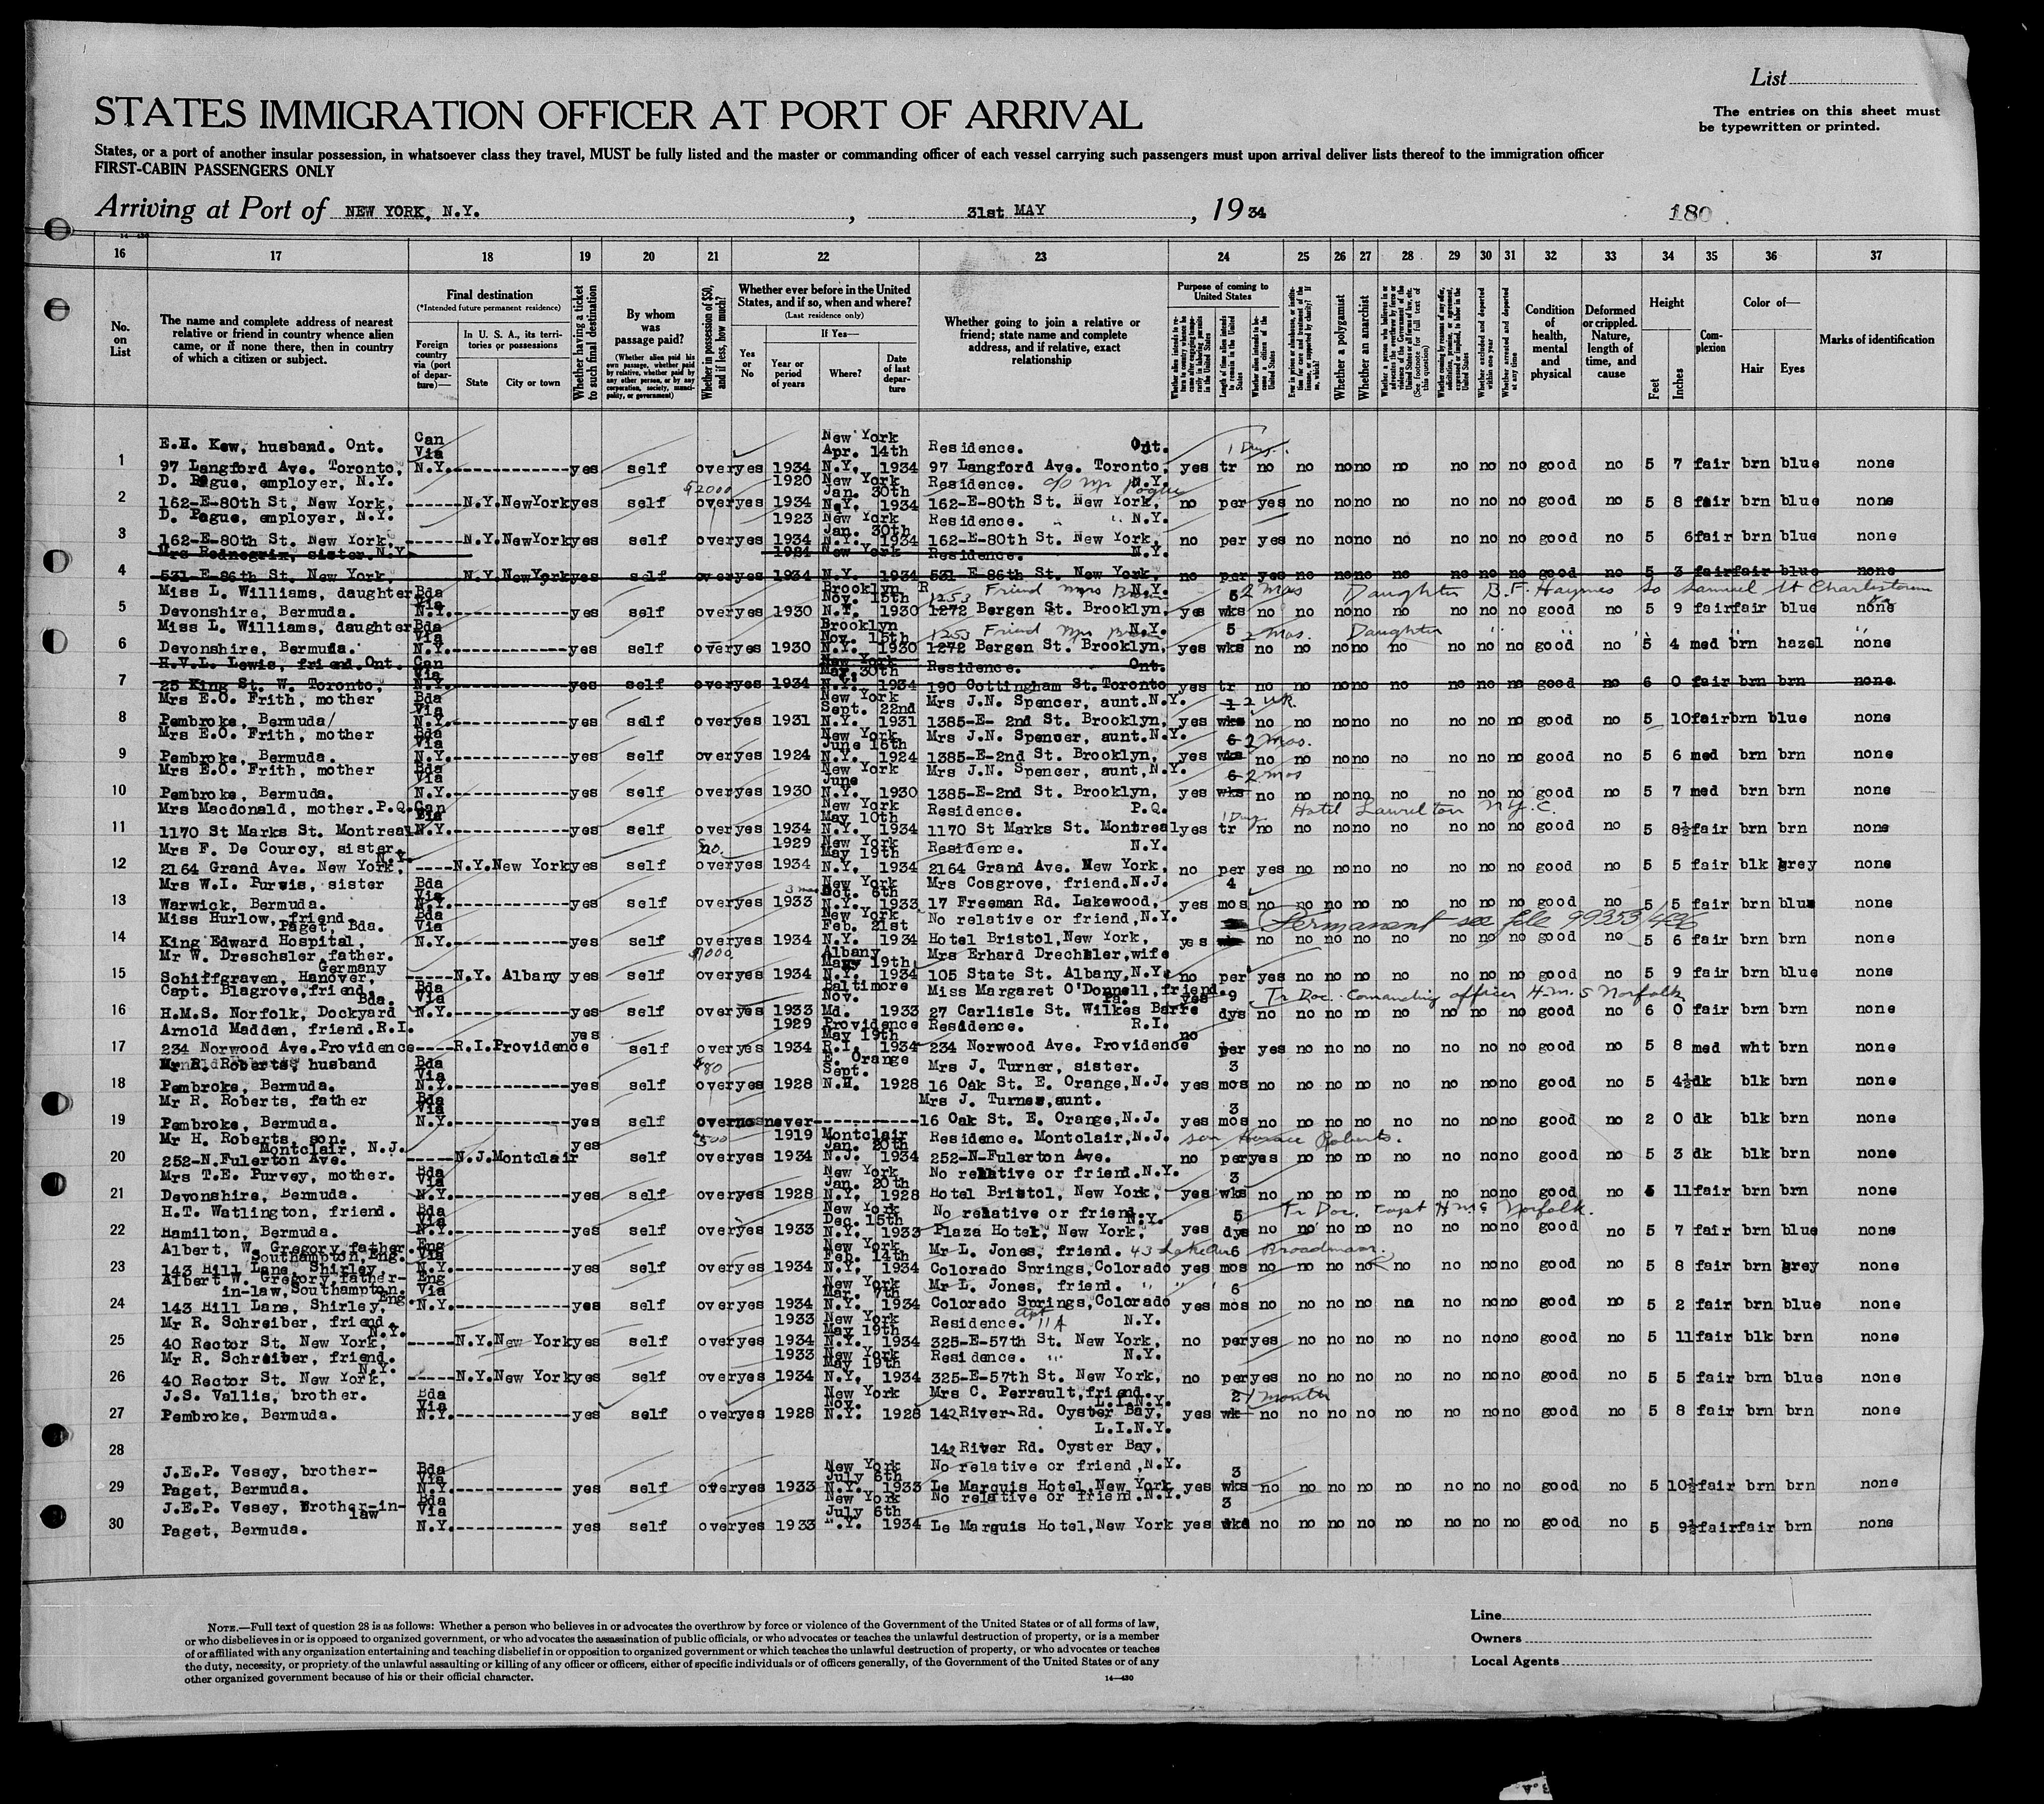 List
STATES IMMIGRATION OFFICER AT PORT OF ARRIVAL
The entries on this sheet must
be typewritten or printed.
States, or a port of another insular possession, in whatsoever class they travel, MUST be fully listed and the master or commanding officer of each vessel carrying such passengers must upon arrival deliver lists thereof to the immigration officer
FIRST-CABIN PASSENGERS ONLY
Arriving at Port of NEW YORK, N.Y., 31st MAY, 1934
180
16 17 18 19 20 21 22 23 24 25 26 27 28 29 30 31 32 33 34 35 36 37
No. on List
The name and complete address of nearest relative or friend in country whence alien came, or if none there, then in country of which a citizen or subject.
Final destination
(*Intended future permanent residence)
Foreign country via (port of departure)—
In U. S. A., its territories or possessions
State
City or town
Whether having a ticket to such final destination
By whom was passage paid?
(Whether alien paid his own passage, whether paid by relative, whether paid by any other person, or by any corporation, society, municipality, or government)
Whether in possession of $50, and if less, how much?
Whether ever before in the United States, and if so, when and where?
(Last residence only)
Yes or No
If Yes—
Year or period of years
Where?
Date of last departure
Whether going to join a relative or friend; state name and complete address, and if relative, exact relationship
Purpose of coming to United States
Length of time alien intends to remain in the United States
Whether alien intends to become a citizen of the United States
Whether a polygamist
Whether an anarchist
Whether excluded and deported within one year
Whether arrested and deported at any time
Condition of health, mental and physical
Deformed or crippled. Nature, length of time, and cause
Height
Feet
Inches
Complexion
Color of—
Hair
Eyes
Marks of identification
E.H. Kew, husband. Ont. Can New York
Via Apr. 14th Residence. Ont. 1 Day.
1 97 Langford Ave. Toronto, N.Y. yes self over yes 1934 N.Y. 1934 97 Langford Ave. Toronto, yes tr no no no no no no no no good no 5 7 fair brn blue none
D. Pague, employer, N.Y. $2000 1920 New York Jan. 30th Residence. c/o Mr Pogue N.Y.
2 162-E-80th St. New York, N.Y. New York yes self over yes 1934 N.Y. 1934 162-E-80th St. New York, no per yes no no no no no no no good no 5 8 fair brn blue none
D. Pague, employer, N.Y. 1923 New York Jan. 30th Residence. " " N.Y.
3 162-E-80th St. New York, N.Y. New York yes self over yes 1934 N.Y. 1934 162-E-80th St. New York, no per yes no no no no no no no good no 5 6 fair brn blue none
Mrs Rednegrix, sister. N.Y. 1924 New York Residence. N.Y.
4 531-E-86th St. New York, N.Y. New York yes self over yes 1934 N.Y. 1934 531-E-86th St. New York, no per yes no no no no no no no good no 5 3 fair fair blue none
Miss L. Williams, daughter Bda Via Brooklyn Nov. 15th 1253 Friend Mrs N.Y. 5 2 Mos Daughter B.F. Haynes Samuel St Charlestown
5 Devonshire, Bermuda. N.Y. yes self over yes 1930 N.Y. 1930 1272 Bergen St. Brooklyn, yes wks no no no no no no no no good no 5 9 fair fair blue none
Miss L. Williams, daughter Bda Via Brooklyn Nov. 15th 1253 Friend Mrs N.Y. 5 2 mos. Daughter " " " "
6 Devonshire, Bermuda. N.Y. yes self over yes 1930 N.Y. 1930 1272 Bergen St. Brooklyn, yes wks no no no no no no no no good no 5 4 med brn hazel none
H.V.L. Lewis, friend. Ont. Can Via New York May. 30th Residence. Ont.
7 25 King St. W. Toronto, N.Y. yes self over yes 1934 N.Y. 1934 190 Cottingham St. Toronto yes tr no no no no no no no no good no 6 0 fair brn brn none
Mrs E.O. Frith, mother Bda Via New York Sept. 22nd Mrs J.N. Spencer, aunt. N.Y. 1 2 wk.
8 Pembroke, Bermuda/ N.Y. yes self over yes 1931 N.Y. 1931 1385-E- 2nd St. Brooklyn, yes wks no no no no no no no no good no 5 10 fair brn blue none
Mrs E.O. Frith, mother Bda Via New York June 15th Mrs J.N. Spencer, aunt. N.Y. 6 2 mos.
9 Pembroke, Bermuda. N.Y. yes self over yes 1924 N.Y. 1924 1385-E-2nd St. Brooklyn, yes wks no no no no no no no no good no 5 6 med brn brn none
Mrs E.O. Frith, mother Bda Via New York June Mrs J.N. Spencer, aunt, N.Y. 6 2 mos
10 Pembroke, Bermuda. N.Y. yes self over yes 1930 N.Y. 1930 1385-E-2nd St. Brooklyn, yes wks no no no no no no no no good no 5 7 med brn brn none
Mrs Macdonald, mother. P.Q. Can Via New York May 10th Residence. P.Q. 1 Day Hotel Laurelton N.Y.C.
11 1170 St Marks St. Montreal N.Y. yes self over yes 1934 N.Y. 1934 1170 St Marks St. Montreal yes tr no no no no no no no no good no 5 8½ fair brn brn none
Mrs F. De Courcy, sister. N.Y. 1929 New York May 19th Residence. N.Y.
12 2164 Grand Ave. New York, N.Y. New York yes self over yes 1934 N.Y. 1934 2164 Grand Ave. New York, no per yes no no no no no no no good no 5 5 fair blk grey none
Mrs W.I. Purvis, sister Bda Via 3 mos New York Oct. 6th Mrs Cosgrove, friend. N.J. 4
13 Warwick, Bermuda. N.Y. yes self over yes 1933 N.Y. 1933 17 Freeman Rd. Lakewood, yes mos no no no no no no no no good no 5 5 fair brn blue none
Miss Hurlow, friend. Paget, Bda. Bda Via New York Feb. 21st No relative or friend, N.Y. Permanent see file 99353/496
14 King Edward Hospital, N.Y. yes self over yes 1934 N.Y. 1934 Hotel Bristol, New York, yes no no no no no no no no good no 5 6 fair brn brn none
Mr W. Dreschsler, father. Germany $1000 Albany May 19th Mrs Erhard Drechsler, wife
15 Schiffgraven, Hanover, N.Y. Albany yes self over yes 1934 N.Y. 1934 105 State St. Albany, N.Y. no per yes no no no no no no no good no 5 9 fair brn blue none
Capt. Blagrove, friend Bda. Bda Via Baltimore Nov. Miss Margaret O'Donnell, friend. Pa. yes 9 Tr Doc. Comanding officer H.M.S Norfolk
16 H.M.S. Norfolk, Dockyard N.Y. yes self over yes 1933 Md. 1933 27 Carlisle St. Wilkes Barre dys no no no no no no no no good no 6 0 fair brn brn none
Arnold Madden, friend. R.I. yes 1929 Providence May 19th Residence. R.I. no
17 234 Norwood Ave. Providence R.I. Providence self over yes 1934 R.I. 1934 234 Norwood Ave. Providence per yes no no no no no no no good no 5 8 med wht brn none
Mr R. Roberts, husband Bda Via $80 E. Orange Sept. Mrs J. Turner, sister. 3
18 Pembroke, Bermuda. N.Y. yes self over yes 1928 N.H. 1928 16 Oak St. E. Orange, N.J. yes mos no no no no no no no no good no 5 4½ dk blk brn none
Mr R. Roberts, father Bda Via Mrs J. Turner, aunt. 3
19 Pembroke, Bermuda. N.Y. yes self over no never 16 Oak St. E. Orange, N.J. yes mos no no no no no no no no good no 2 0 dk blk brn none
Mr H. Roberts, son. Montclair, N.J. yes $500 1919 Montclair Jan. 20th Residence. Montclair, N.J. son Horace Roberts.
20 252-N.Fulerton Ave. N.J. Montclair self over yes 1934 N.J. 1934 252-N-Fulerton Ave. no per yes no no no no no no no good no 5 3 dk blk brn none
Mrs T.E. Purvey, mother. Bda Via New York Jan. 20th No relative or friend. N.Y. 3
21 Devonshire, Bermuda. N.Y. yes self over yes 1928 N.Y. 1928 Hotel Bristol, New York, yes wks no no no no no no no no good no 5 11 fair brn brn none
H.T. Watlington, friend. Bda Via New York Dec. 15th No relative or friend. N.Y. 5 Tr Doc. Capt H.M.S Norfolk.
22 Hamilton, Bermuda. N.Y. yes self over yes 1933 N.Y. 1933 Plaza Hotel, New York, yes dys no no no no no no no no good no 5 7 fair brn blue none
Albert, W. Gregory, father. Southampton, Eng. Eng Via New York Feb. 14th Mr L. Jones, friend. 43 Lake Ave 6 Broadmoor.
23 143 Hill Lane, Shirley, N.Y. yes self over yes 1934 N.Y. 1934 Colorado Springs, Colorado yes mos no no no no no no no no good no 5 8 fair brn grey none
Albert W. Gregory, father-in-law, Southampton. Eng. Eng Via New York Mar. 7th Mr L. Jones, friend. " " 6
24 143 Hill Lane, Shirley, N.Y. yes self over yes 1934 N.Y. 1934 Colorado Springs, Colorado yes mos no no no no no no no no good no 5 2 fair brn blue none
Mr R. Schreiber, friend. N.Y. 1933 New York May 19th Residence. apt 11A N.Y.
25 40 Rector St. New York, N.Y. New York yes self over yes 1934 N.Y. 1934 325-E-57th St. New York, no per yes no no no no no no no good no 5 11 fair blk brn none
Mr R. Schreiber, friend. N.Y. 1933 New York May 19th Residence. " N.Y.
26 40 Rector St. New York, N.Y. New York yes self over yes 1934 N.Y. 1934 325-E-57th St. New York, no per yes no no no no no no no good no 5 5 fair brn blue none
J.S. Vallis, brother. Bda Via New York Nov. Mrs C. Perrault, friend. L.I.N.Y. 2 1 month
27 Pembroke, Bermuda. N.Y. yes self over yes 1928 N.Y. 1928 142 River Rd. Oyster Bay, yes wk no no no no no no no no good no 5 8 fair brn brn none
L.I.N.Y.
28 142 River Rd. Oyster Bay,
J.E.P. Vesey, brother- Bda Via New York July 6th No relative or friend, N.Y. 3
29 Paget, Bermuda. N.Y. yes self over yes 1933 N.Y. 1933 Le Marquis Hotel, New York yes wks no no no no no no no no good no 5 10½ fair brn brn none
J.E.P. Vesey, Brother-in-law Bda Via New York July 6th No relative or friend N.Y. 3
30 Paget, Bermuda. N.Y. yes self over yes 1933 N.Y. 1934 Le Marquis Hotel, New York yes wks no no no no no no no no good no 5 9½ fair fair brn none
NOTE.—Full text of question 28 is as follows: Whether a person who believes in or advocates the overthrow by force or violence of the Government of the United States or of all forms of law,
or who disbelieves in or is opposed to organized government, or who advocates the assassination of public officials, or who advocates or teaches the unlawful destruction of property, or is a member
of or affiliated with any organization entertaining and teaching disbelief in or opposition to organized government or which teaches the unlawful destruction of property, or who advocates or teaches
the duty, necessity, or propriety of the unlawful assaulting or killing of any officer or officers, either of specific individuals or of officers generally, of the Government of the United States or of any
other organized government because of his or their official character.
14—430
Line
Owners
Local Agents